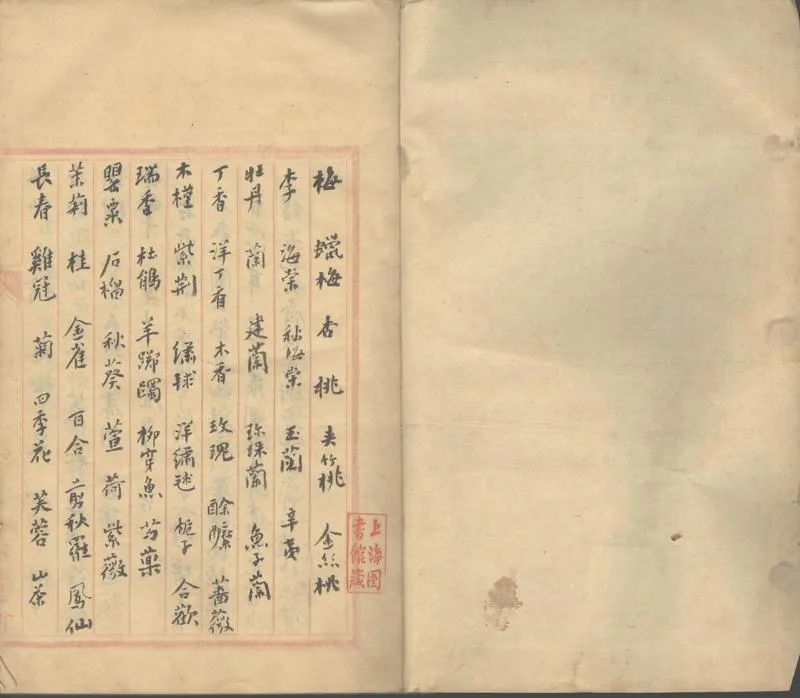 梅 蠟梅 杏 桃 夾竹桃 金絲桃
李 海棠 秋海棠 玉蘭 辛夷
牡丹 蘭 建蘭 珍珠蘭 魚子蘭
丁香 洋丁香 木香 玫瑰 酴醾 薔薇
木槿 紫荆 繡球 洋繡毬 梔子 合歡
瑞香 杜鵑 羊躑躅 柳穿魚 芍藥
罌粟 石榴 秋葵 萱 荷 紫薇
茉莉 桂 金雀 百合 剪秋羅 鳳仙
長春 雞冠 菊 四季花 芙蓉 山茶
上海图
書館藏